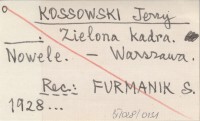 KOSSOWSKI Jerzy
——: Zielona kadra.
Nowele. – Warszawa.
Rec.: FURMANIK S.
1928...